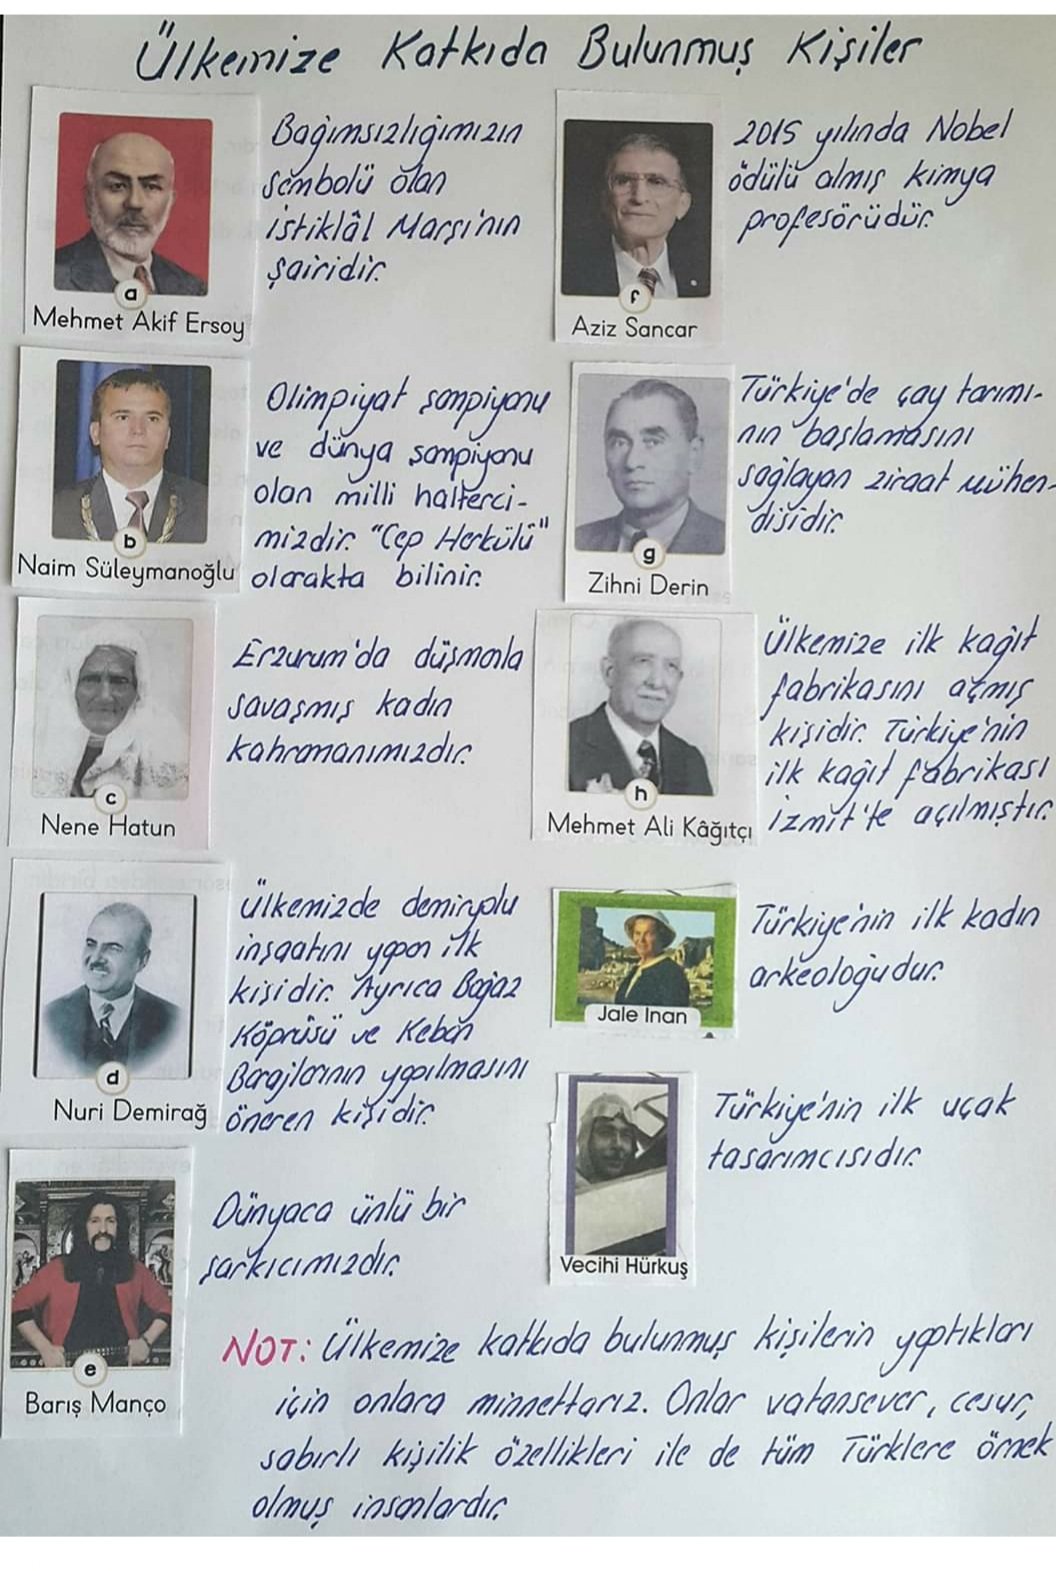 Ülkemize Katkıda Bulunmuş Kişiler
Bağımsızlığımızın
sembolü olan
istiklâl Marşı'nın
şairidir.
a
Mehmet Akif Ersoy
Olimpiyat şampiyonu
ve dünya şampiyonu
olan milli halterci-
mizdir. "Cep Herkülü"
olarakta bilinir.
b
Naim Süleymanoğlu
Erzurum'da düşmanla
savaşmış kadın
kahramanımızdır.
c
Nene Hatun
Ülkemizde demiryolu
inşaatını yapan ilk
kişidir. Ayrıca Boğaz
Köprüsü ve Keban
Barajlarının yapılmasını
öneren kişidir.
d
Nuri Demirağ
Dünyaca ünlü bir
şarkıcımızdır.
e
Barış Manço
2015 yılında Nobel
ödülü almış kimya
profesörüdür.
f
Aziz Sancar
Türkiye'de çay tarımı-
nın başlamasını
sağlayan ziraat mühen-
disidir.
g
Zihni Derin
Ülkemize ilk kağıt
fabrikasını açmış
kişidir. Türkiye'nin
ilk kağıt fabrikası
izmit'te açılmıştır.
h
Mehmet Ali Kâğıtçı
Türkiye'nin ilk kadın
arkeoloğudur.
Jale İnan
Türkiye'nin ilk uçak
tasarımcısıdır.
Vecihi Hürkuş
NOT: Ülkemize katkıda bulunmuş kişilerin yaptıkları
için onlara minnettarız. Onlar vatansever, cesur,
sabırlı kişilik özellikleri ile de tüm Türklere örnek
olmuş insanlardır.